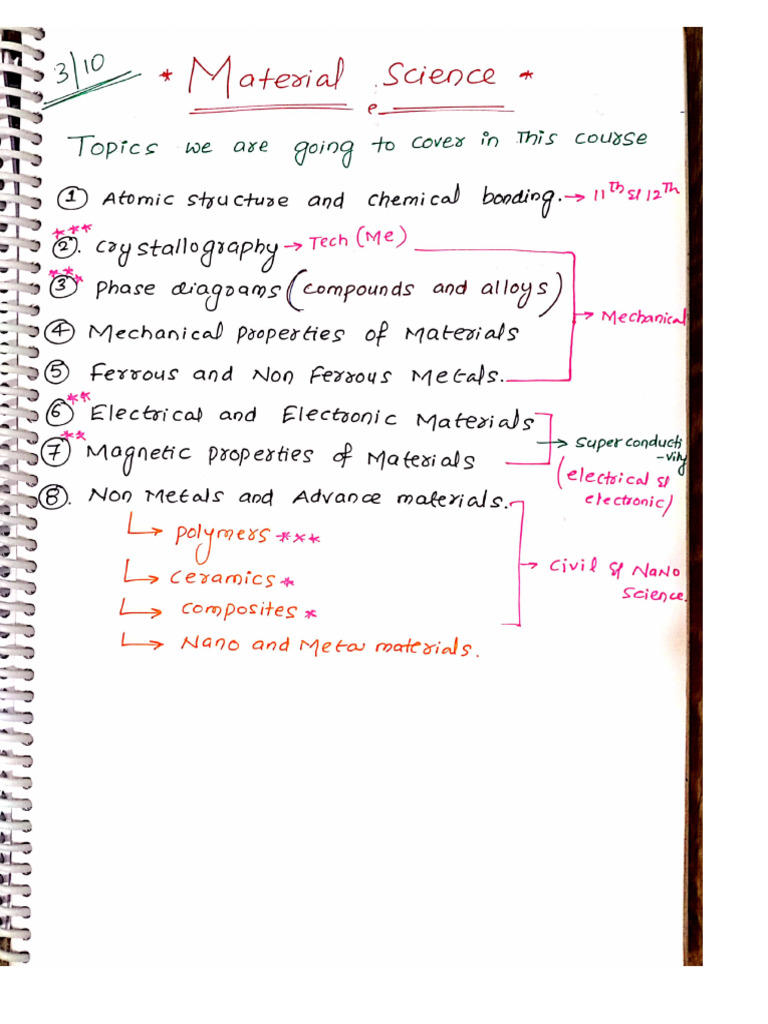 3/10 * Material Science *
Topics we are going to cover in This course
① Atomic structure and chemical bonding. → 11Th & 12Th
***
②. crystallography → Tech (Me)
***
③ phase diagrams (compounds and alloys)
→ Mechanical
④ Mechanical properties of Materials
⑤ Ferrous and Non Ferrous Metals.
**
⑥ Electrical and Electronic Materials
→ Superconducti
-vity
**
⑦ Magnetic properties of Materials
(electrical &
electronic)
⑧. Non Metals and Advance materials.
↳ polymers ***
↳ ceramics *
→ civil & Nano
Science.
↳ composites *
↳ Nano and Meta materials.